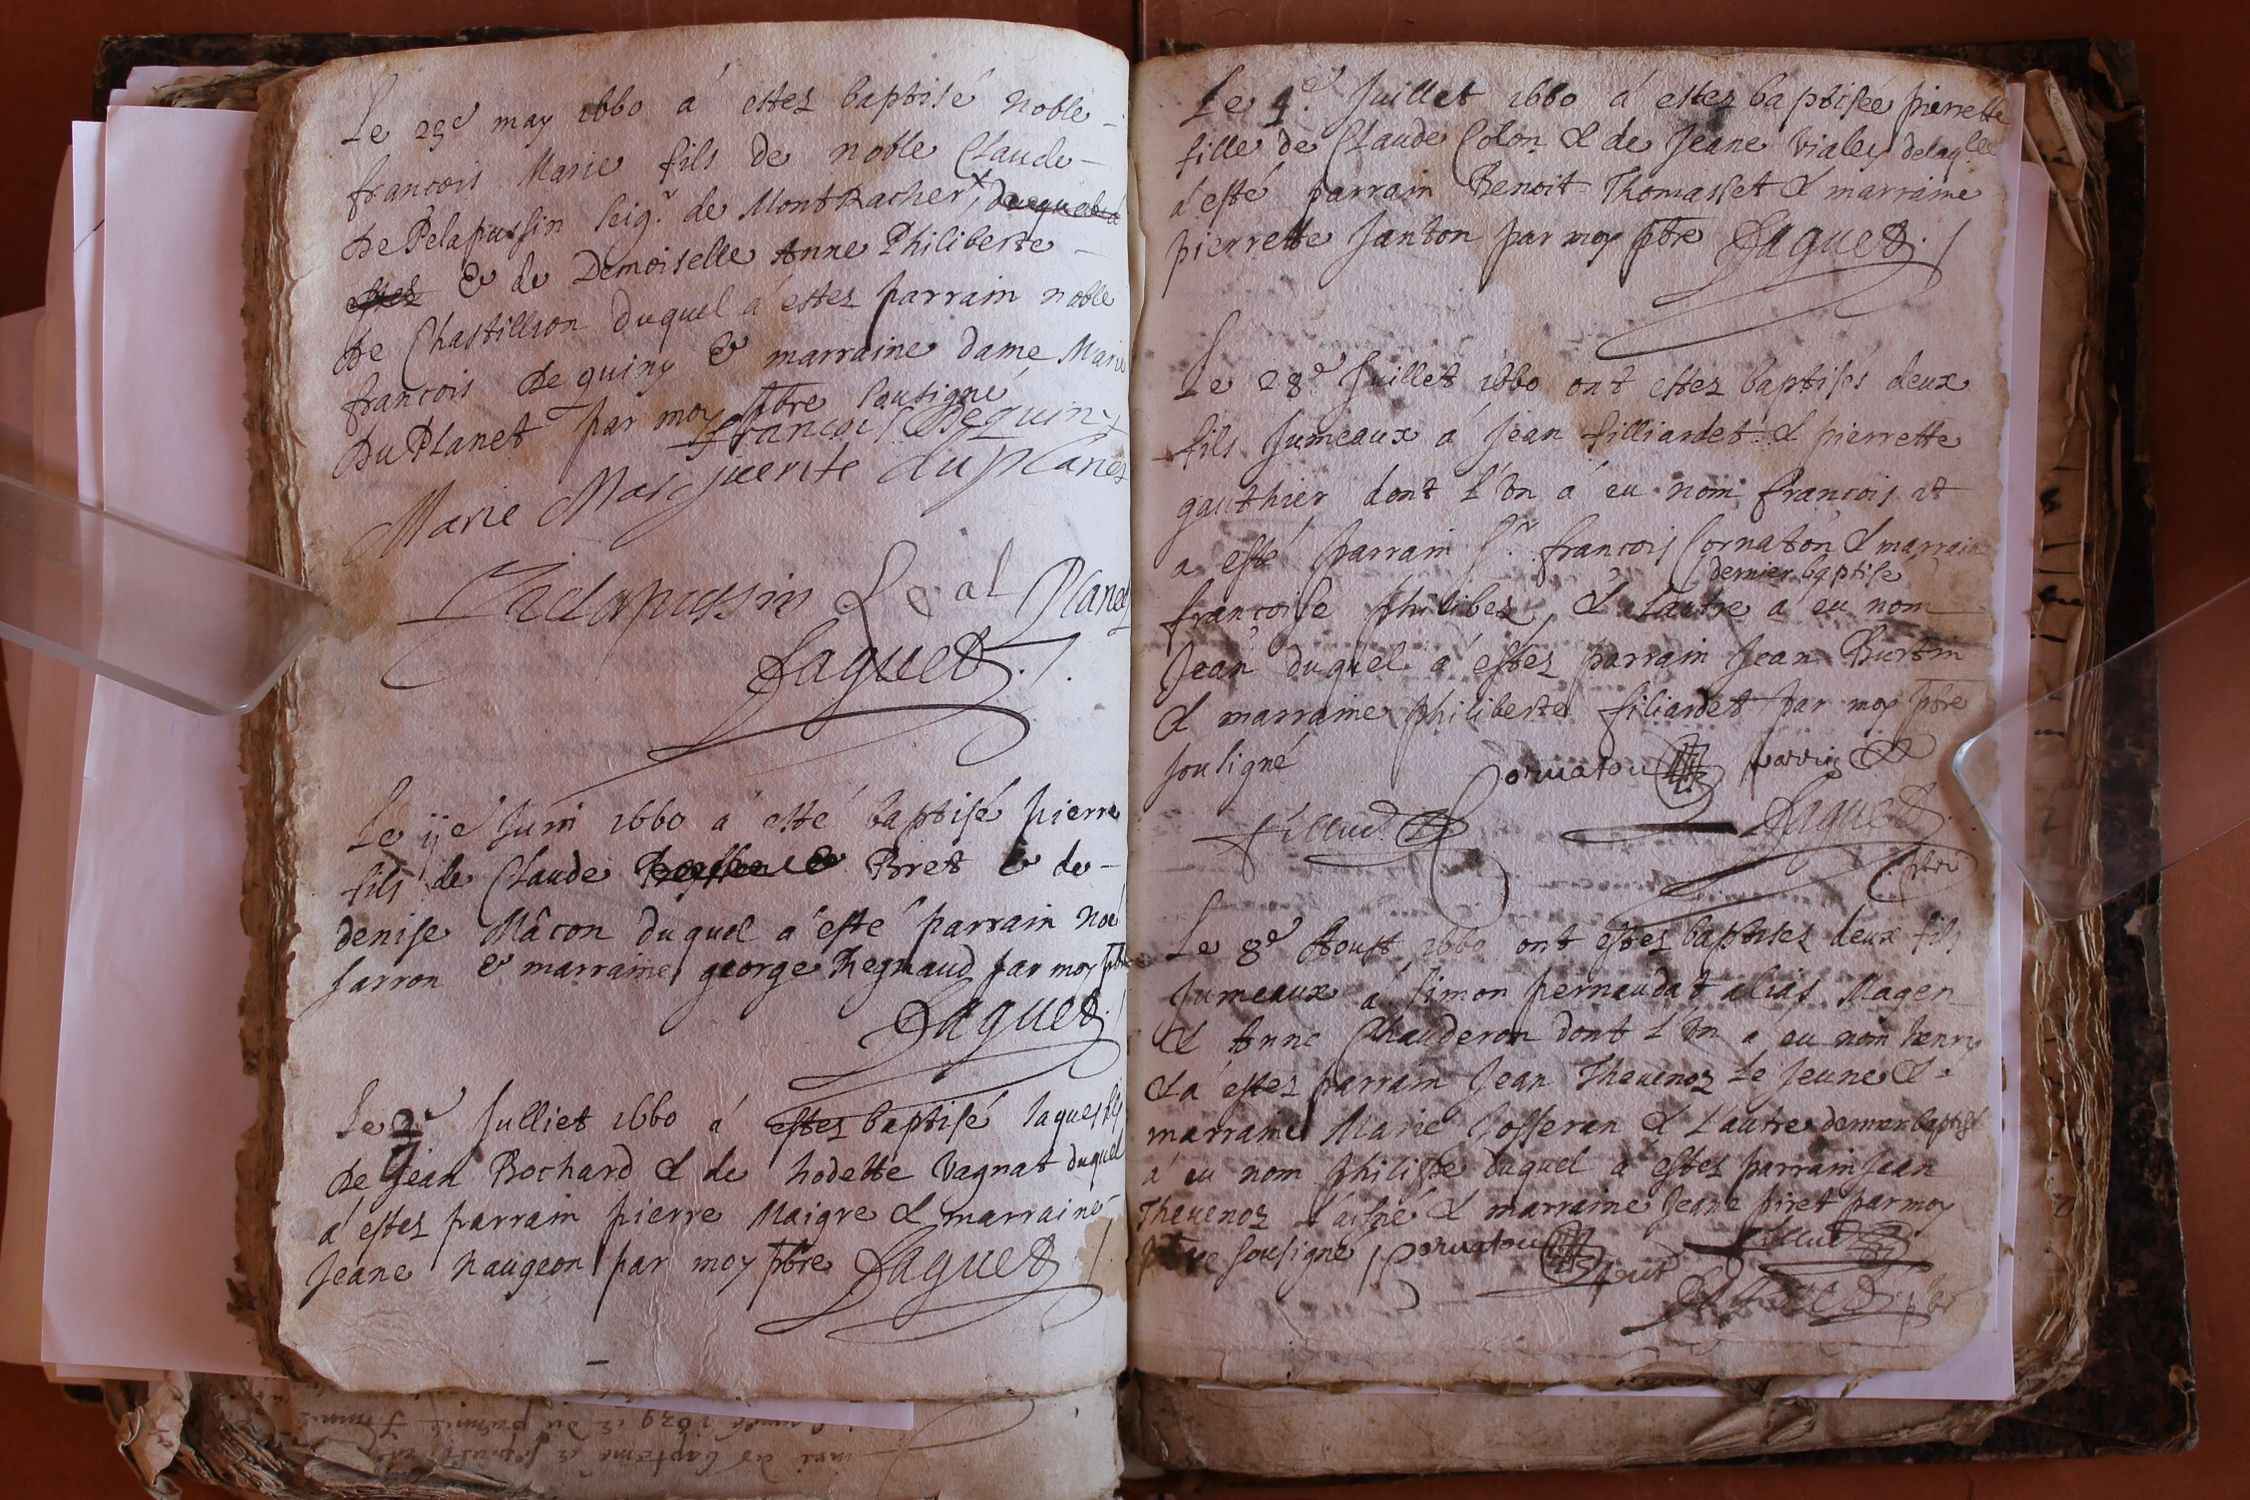 Le 29e may 1660 á estez baptisé noble
francois Marie fils de noble Claude
de Pelapussin seigr de MontRacher, duquel á
estez & de Demoiselle Anne Philiberte
de Chastillion duquel á estez parrain noble
francois de quiny & marraine dame Marie
Du Planet par moy ptbre sousigné
francois Dequiny
Marie Marguerite du planet
Pelapussin
Planet
Jaguet
Le ije Juin 1660 a esté baptisé pierre
fils de Claude Bret & de
denise Mâcon duquel a esté parrain noé
sarron & marraine george Regnaud par moy ptbre
Jaguet
Le 2e Julliet 1660 á estez baptisé Jaques fils
de Jean Bochard & de nodette Vagnat duquel
a estez parrain pierre Maigre & marraine
Jeane naugeon par moy ptbre Jaguet
Le 4e Juillet 1660 á estez baptisée pierrette
fille de Claude Colon & de Jeane Vialey delaqlle
a esté parrain Benoit Thomasset & marraine
pierrette Janton par moy ptbre Jaguet
Le 28e Juillet 1660 ont estez baptisés deux
fils Jumeaux á Jean filliardet & pierrette
gauthier dont L'Vn á eu nom francois et
a esté parrain Sr francois Cornaton & marraine
dernier baptise
francoise philibez, & Lautre a eu nom
Jean duquel á estez parrain Jean Burtin
& marraine philiberte filiardet par moy ptbre
sousigné Cornaton parrin
fillud Jaguet
ptbre
Le 8e Aoust 1660 ont estez baptisez deux fils
Jumeaux á Simon pernaudat alias Magen
& Anne Chauderon dont L'Vn a eu nom henry
& á estez parrain Jean Thevenoz Le Jeune &
marraine Marie Josseran & L'autre dernier baptisé
á eu nom philippe duquel a estez parrain Jean
Thevenoz L'aisné & marraine Jeane piret par moy
ptbre sousigné Cornaton fillud
Jaguet ptbr